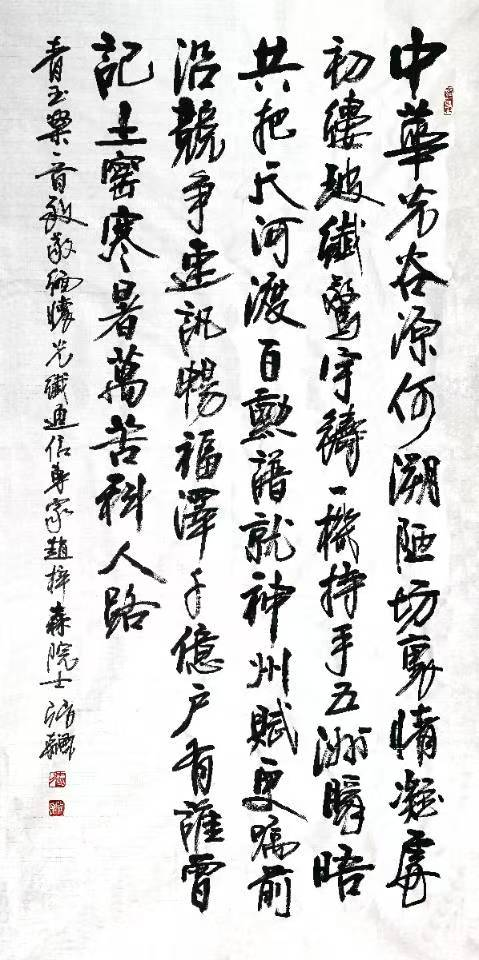 中华光谷源何溯陋坊里情凝處
初缕玻纖驚宇鑄一機持手五洲瞬晤
共把天河渡百勳譜就神州賦更騖前
沿競爭速訊暢福澤千億户有誰曾
記土窑寒暑萬苦科人路
青玉案·音致敬緬懷光纖通信專家趙梓森院士